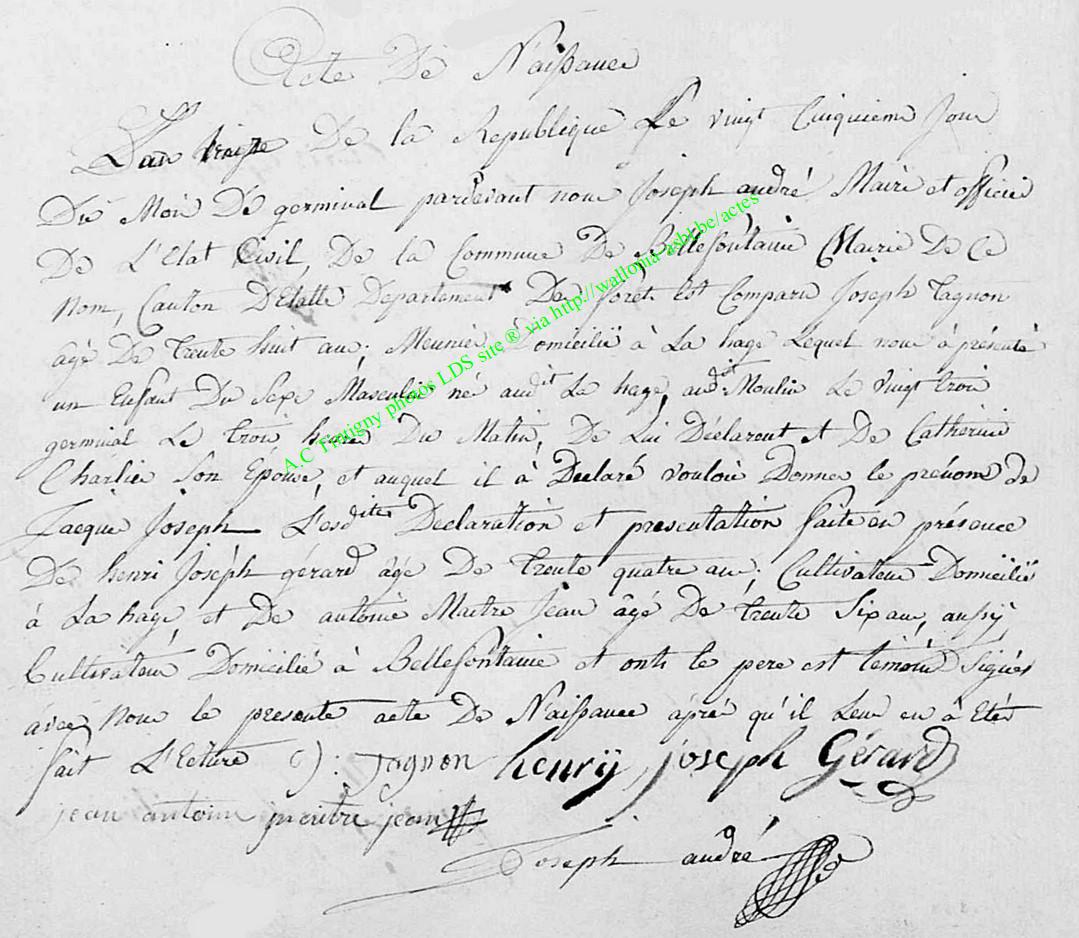 Acte De Naissance
L'an treize De la Republique Le vingt Cinquieme Jour
Du Moi De germinal pardevant nou Joseph andré Maire et officie
De L'Etat Civil, De la Commune De Bellefontaine Mairie De Ce
Nom, Canton D'Etalle Departement De foret est Comparu Joseph Tagnon
âgé De trente huit an, Meunier Domicilié à La hage Lequel nou à présenté
un Enfant Du Sexe Masculin né audit La hage, audit Moulin Le vingt troi
germinal Le troi heure Du Matin, De Lui Déclarent et De Catherine
Charlier Son Epouse, et auquel il à Declaré vouloir Donner le prénom de
Jacque Joseph L'esdites Declaration et presentation faite en présence
De henri Joseph gérard âgé De trente quatre an, Cultivateur Domicilié
à La hage et De antoine Maitre Jean âgé De trente Six an, aussÿ
Cultivateur Domicilié à Bellefontaine et onts le pere est temoin Signés
avec Nou le presente acte De Naissance âpré qu'il Leur en à Etér
fait L'Ecture J: Tagnon henrÿ joseph Gérard
jean antoin meitre jean
Joseph andré
A.C Tintigny photos LDS site ® via http://wallonia-asbl.be/actes